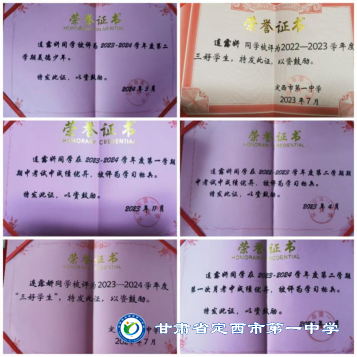 荣誉证书
HONORARY CREDENTIAL
连露妍同学被评为2023-2024学年度第二
学期美德少年。
特发此证，以资鼓励。
2024年5月
荣誉证书
连露妍 同学被评为2022—2023学年度
三好学生，特发此证，以资鼓励。
定西市第一中学
2023年7月
荣誉证书
HONORARY CREDENTIAL
连露妍同学在2023-2024学年度第一学期
期中考试中成绩优异，被评为学习标兵。
特发此证，以资鼓励。
2023年11月
荣誉证书
HONORARY CREDENTIAL
连露妍同学在2022-2023学年度第二学期
期中考试中成绩优异，被评为学习标兵。
特发此证，以资鼓励。
2023年4月
荣誉证书
HONORARY CREDENTIAL
连露妍 同学被评为2023—2024学年度
“三好学生”，特发此证，以资鼓励。
2024年7月
荣誉证书
HONORARY CREDENTIAL
连露妍同学在2023-2024学年度第二学期
第一次月考中成绩优异，被评为学习标兵。
特发此证，以资鼓励。
甘肃省定西市第一中学